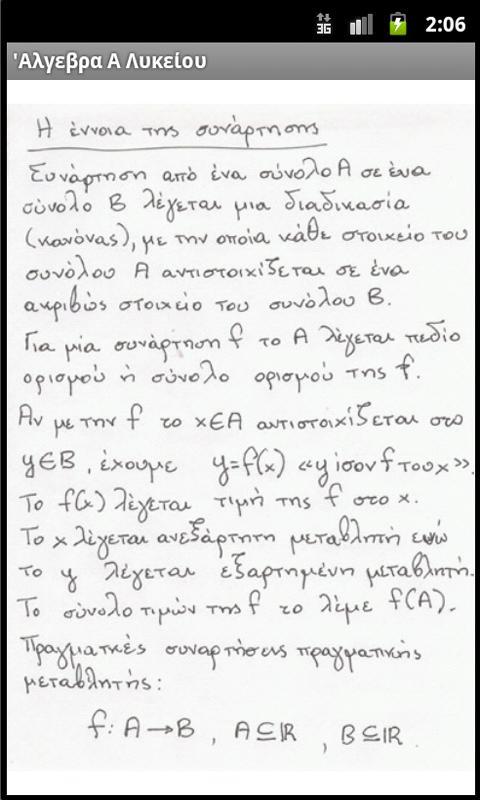 3G 2:06
'Αλγεβρα Α Λυκείου
Η έννοια της συνάρτησης
Συνάρτηση από ένα σύνολο Α σε ένα
σύνολο Β λέγεται μια διαδικασία
(κανόνας), με την οποία κάθε στοιχείο του
συνόλου Α αντιστοιχίζεται σε ένα
ακριβώς στοιχείο του συνόλου Β.
Για μία συνάρτηση f το Α λέγεται πεδίο
ορισμού ή σύνολο ορισμού της f.
Αν με την f το x∈A αντιστοιχίζεται στο
y∈B, έχουμε y=f(x) «y ίσον f του x».
Το f(x) λέγεται τιμή της f στο x.
Το x λέγεται ανεξάρτητη μεταβλητή ενώ
το y λέγεται εξαρτημένη μεταβλητή.
Το σύνολο τιμών της f το λέμε f(A).
Πραγματικές συναρτήσεις πραγματικής
μεταβλητής:
f: A→B, A⊆ℝ, B⊆ℝ.